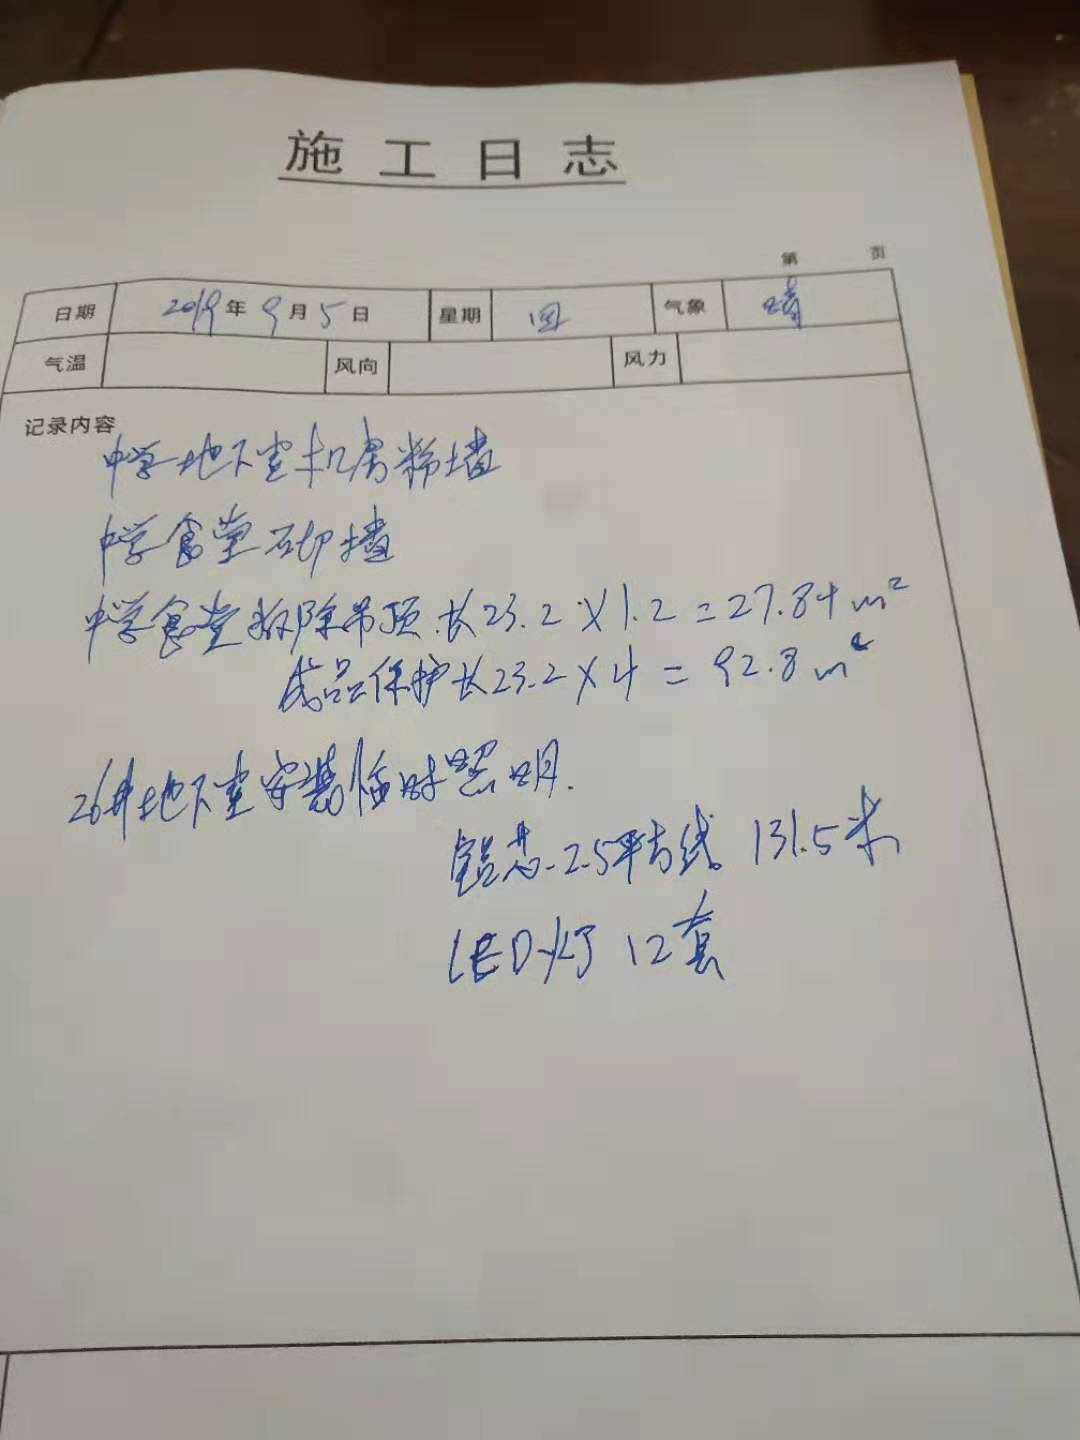 施工日志
第 页
日期 2019年9月5日 星期 四 气象 晴
气温 风向 风力
记录内容
中学地下室机房粉墙
中学食堂砌墙
中学食堂拆除吊顶.长23.2×1.2=27.84m²
成品保护长23.2×4=92.8m²
26#地下室安装临时照明.
铝芯-2.5平方线 131.5米
LED灯 12套